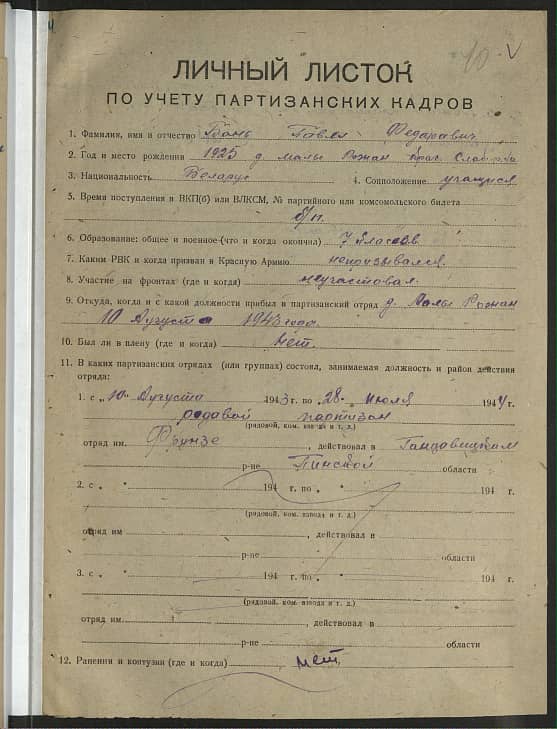 10 V
ЛИЧНЫЙ ЛИСТОК
ПО УЧЕТУ ПАРТИЗАНСКИХ КАДРОВ
1. Фамилия, имя и отчество Павел Федаравич
2. Год и место рождения 1925 д. малы Рожан
3. Национальность Беларус 4. Соцположение учащися
5. Время поступления в ВКП(б) или ВЛКСМ, № партийного или комсомольского билета
б/п.
6. Образование: общее и военное (что и когда окончил) 7 класов
7. Каким РВК и когда призван в Красную Армию непризывался
8. Участие на фронтах (где и когда) неучаствовал
9. Откуда, когда и с какой должности прибыл в партизанский отряд д. Малы Рожан
10 Августа 1943 года.
10. Был ли в плену (где и когда) нет.
11. В каких партизанских отрядах (или группах) состоял, занимаемая должность и район действия
отряда:
1. с „10" Августа 1943 г. по „28" июля 1944 г.
редавой партизан
(рядовой, ком. взвода и т. д.)
отряд им. Фрунзе, действовал в
р-не Пинской области
2. с „ " 194 г. по „ " 194 г.
(рядовой, ком. взвода и т. д.)
отряд им , действовал в
р-не области
3. с „ " 194 г. по „ " 194 г.
(рядовой, ком. взвода и т. д.)
отряд им. , действовал в
р-не области
12. Ранения и контузии (где и когда) нет